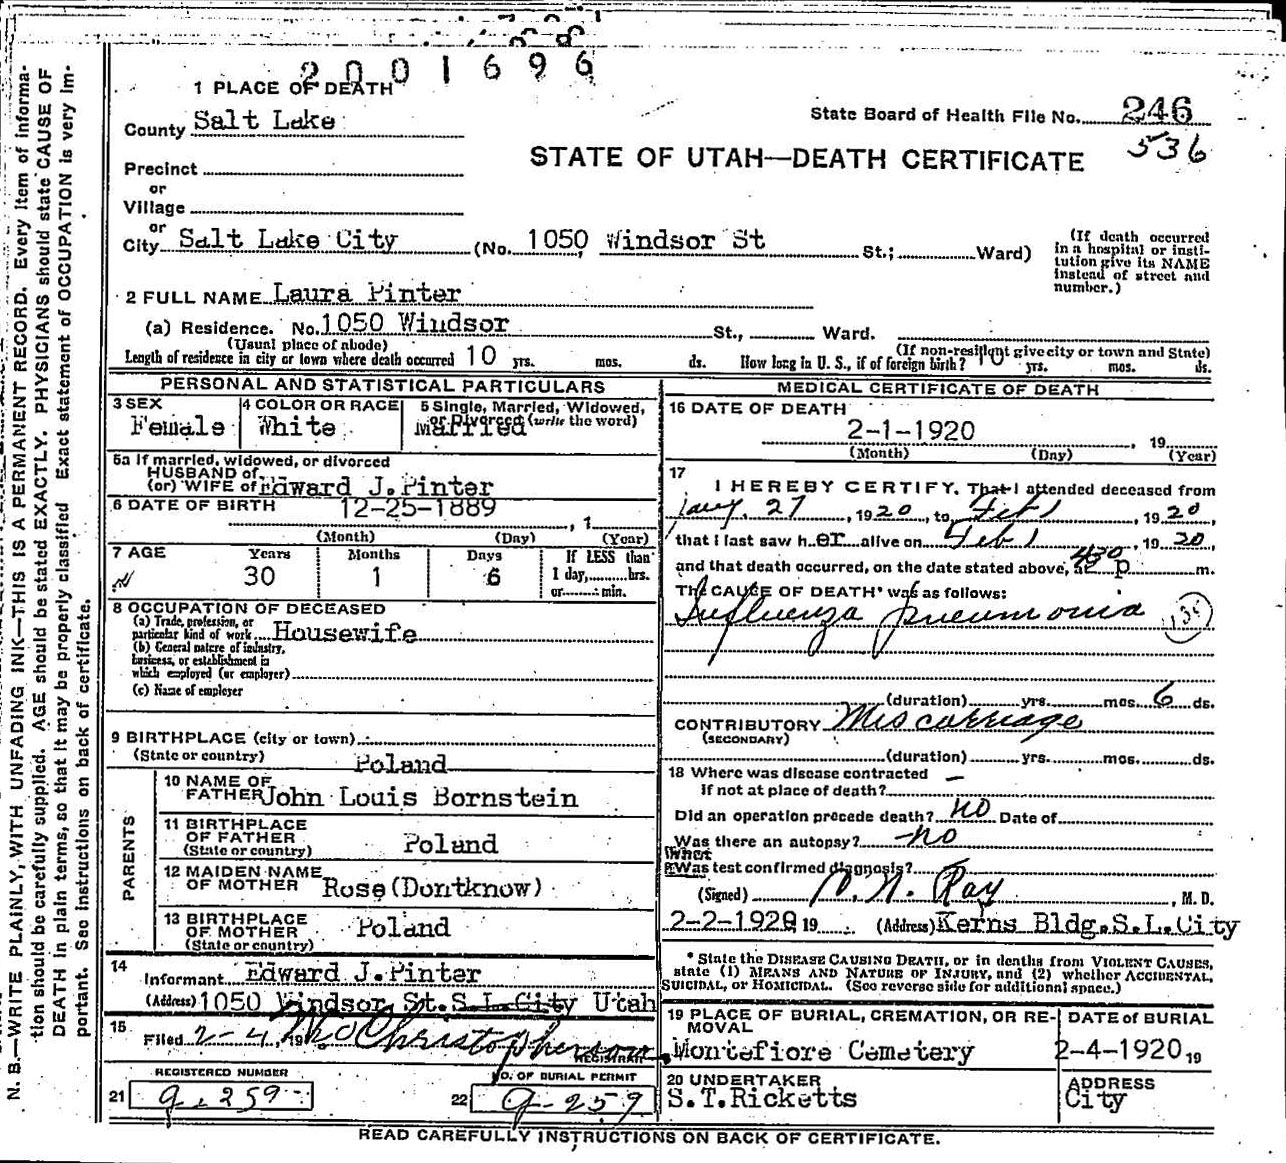 2001696
1 PLACE OF DEATH
County Salt Lake
State Board of Health File No. 246
536
STATE OF UTAH—DEATH CERTIFICATE
Precinct
or
Village
or
City Salt Lake City (No. 1050 Windsor St St.; Ward)
(If death occurred in a hospital or insti-
tution give its NAME instead of street and number.)
2 FULL NAME Laura Pinter
(a) Residence. No. 1050 Windsor St., Ward.
(Usual place of abode)
(If non-resident give city or town and State)
Length of residence in city or town where death occurred 10 yrs. mos. ds. How long in U. S., if of foreign birth? 10 yrs. mos. ds.
PERSONAL AND STATISTICAL PARTICULARS
3 SEX
Female
4 COLOR OR RACE
White
5 Single, Married, Widowed,
or Divorced (write the word)
Married
5a If married, widowed, or divorced
HUSBAND of
(or) WIFE of Edward J.Pinter
6 DATE OF BIRTH 12-25-1889 , 1
(Month) (Day) (Year)
7 AGE Years Months Days If LESS than
30 1 6 1 day, hrs.
or min.
8 OCCUPATION OF DECEASED
(a) Trade, profession, or
particular kind of work Housewife
(b) General nature of industry,
business, or establishment in
which employed (or employer)
(c) Name of employer
9 BIRTHPLACE (city or town)
(State or country) Poland
PARENTS
10 NAME OF
FATHER John Louis Bornstein
11 BIRTHPLACE
OF FATHER Poland
(State or country)
12 MAIDEN NAME
OF MOTHER Rose(Dontknow)
13 BIRTHPLACE
OF MOTHER Poland
(State or country)
14
Informant Edward J.Pinter
(Address) 1050 Windsor St.S.L.City Utah
15
Filed 2-4, 19 Christopherson
REGISTRAR
REGISTERED NUMBER
21 g-259
NO. OF BURIAL PERMIT
22 g-259
MEDICAL CERTIFICATE OF DEATH
16 DATE OF DEATH
2-1-1920 , 19
(Month) (Day) (Year)
17
I HEREBY CERTIFY, That I attended deceased from
Jany. 27, 1920, to Feb 1, 1920,
that I last saw her alive on Feb 1, 1920,
430
and that death occurred, on the date stated above, at p m.
The CAUSE OF DEATH* was as follows:
Influenza pneumonia
(duration) yrs. mos. 6 ds.
CONTRIBUTORY Miscarriage
(SECONDARY)
(duration) yrs. mos. ds.
18 Where was disease contracted —
If not at place of death?
Did an operation precede death? no Date of
Was there an autopsy? no
What
Was test confirmed diagnosis?
(Signed) Ray, M. D.
2-2-1920 19 (Address) Kerns Bldg.S.L.City
* State the DISEASE CAUSING DEATH, or in deaths from VIOLENT CAUSES,
state (1) MEANS AND NATURE OF INJURY, and (2) whether ACCIDENTAL,
SUICIDAL, or HOMICIDAL. (See reverse side for additional space.)
19 PLACE OF BURIAL, CREMATION, OR RE-
MOVAL
Montefiore Cemetery
DATE of BURIAL
2-4-1920 19
20 UNDERTAKER
S.T.Ricketts
ADDRESS
City
READ CAREFULLY INSTRUCTIONS ON BACK OF CERTIFICATE.
N. B.—WRITE PLAINLY, WITH UNFADING INK—THIS IS A PERMANENT RECORD. Every item of informa-
tion should be carefully supplied. AGE should be stated EXACTLY. PHYSICIANS should state CAUSE OF
DEATH in plain terms, so that it may be properly classified Exact statement of OCCUPATION is very im-
portant. See instructions on back of certificate.